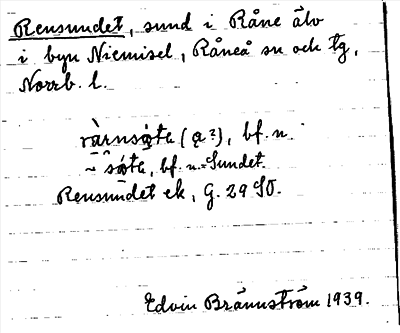 Rensundet, sund i Råne älv
i byn Niemisel, Råneå sn och tg,
Norrb. l.
bf. n.
bf. n. = Sundet
Rensundet ek, G. 29 SO.
Edvin Brännström 1939.